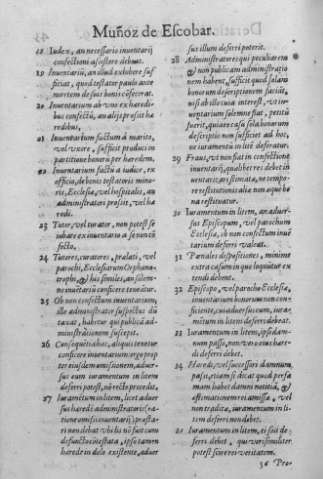 Muñoz de Escobar.
18 Iudex, an necessario inuentarij
confectioni assistere debeat.
19 Inuentariũ, an illud exhibere suf-
ficiat, quod testator paulo ante
mortem de suis bonis cõfecerat.
20 Inuentarium ab vno ex haredi-
bus confectũ, an alijs prosit ha
redibus,
21 Inuentarium factum à marito,
vel vxore, sufficit produci in
partitione bonorũ per haredem.
22 Inuentarium factũ à iudice, ex
officio, de bonis testatoris mino-
ris, Ecclesiæ, vel hospitalis, an
administratori prosit, vel ha
redi.
23 Tutor, vel curator, non potest se
iubare ex inuentario à se nunquã
facto,
24 Tutores, curatores, prælati, vel
parochi, Ecclesiarum Orphano-
trophij, & his similes, an solem-
ne inuentariũ conficere teneãtur.
25 Ob non confectum inuentarium,
ille administrator suspectus dũ
taxat, habetur qui publicã ad-
ministrationem suscepit.
26 Consequitiuus, aliquis tenetur
conficere inuentarium, ergo prop
ter eiusdem omissionem, aduer-
sus eum iuramentum in litem
deferri potest, nõ recte procedit.
27 Iuramentum in litem, licet aduer
sus haredẽ administratoris (ra-
tione omissi inuentarij) præstari
non debeat vbi lis nõ fuit cum
defuncto cõtestata, ipso tamen
harede in dolo existente, aduer
sus illum deferri poterit.
28 Administratores qui peculiarem
& non publicam administratio
nem habent, sufficit quod solam
bonorum descriptionem faciãt,
nisi ab illo cuius interest, vt in-
uentarium solemne fiat, petitũ
fuerit, quia eo casu sola bonorum
descriptio non sufficiet ad hoc,
ne iuramentũ in litẽ deferatur.
29 Fraus, vt non fiat in confectione
inuentarij, qualibet res debet in
uentarizari æstimata, ne tempo-
re restitutionis alia non æque bo
na restituatur.
30 Iuramentum in litem, an aduer-
sus Episcopum, vel parochum
Ecclesiæ, ob non confectum inuẽ
tarium deferri valeat.
31 Pœnales dispositiones, minime
extra casum in quo loquũtur ex
tendi debent.
32 Episcopo, vel parocho Ecclesiæ,
inuentarium bonorum non con-
ficiente, an aduersus eum, iura-
mentum in litem deferri debeat.
33 Iuramentum in litem, ipso dam-
num passo, non verò eius hare-
di deferri debet.
34 Haredi, vel successori damnum
passi, etiam si dicat quod perfa
mam habet damni notitiã, &
æstimationem rei amissæ, vel
non traditæ, iuramentum in li-
tem deferri non debet.
35 Iuramentum in litem, ei soli de-
ferri debet, qui verisimiliter
potest scire rei veritatem.
36 Pro-